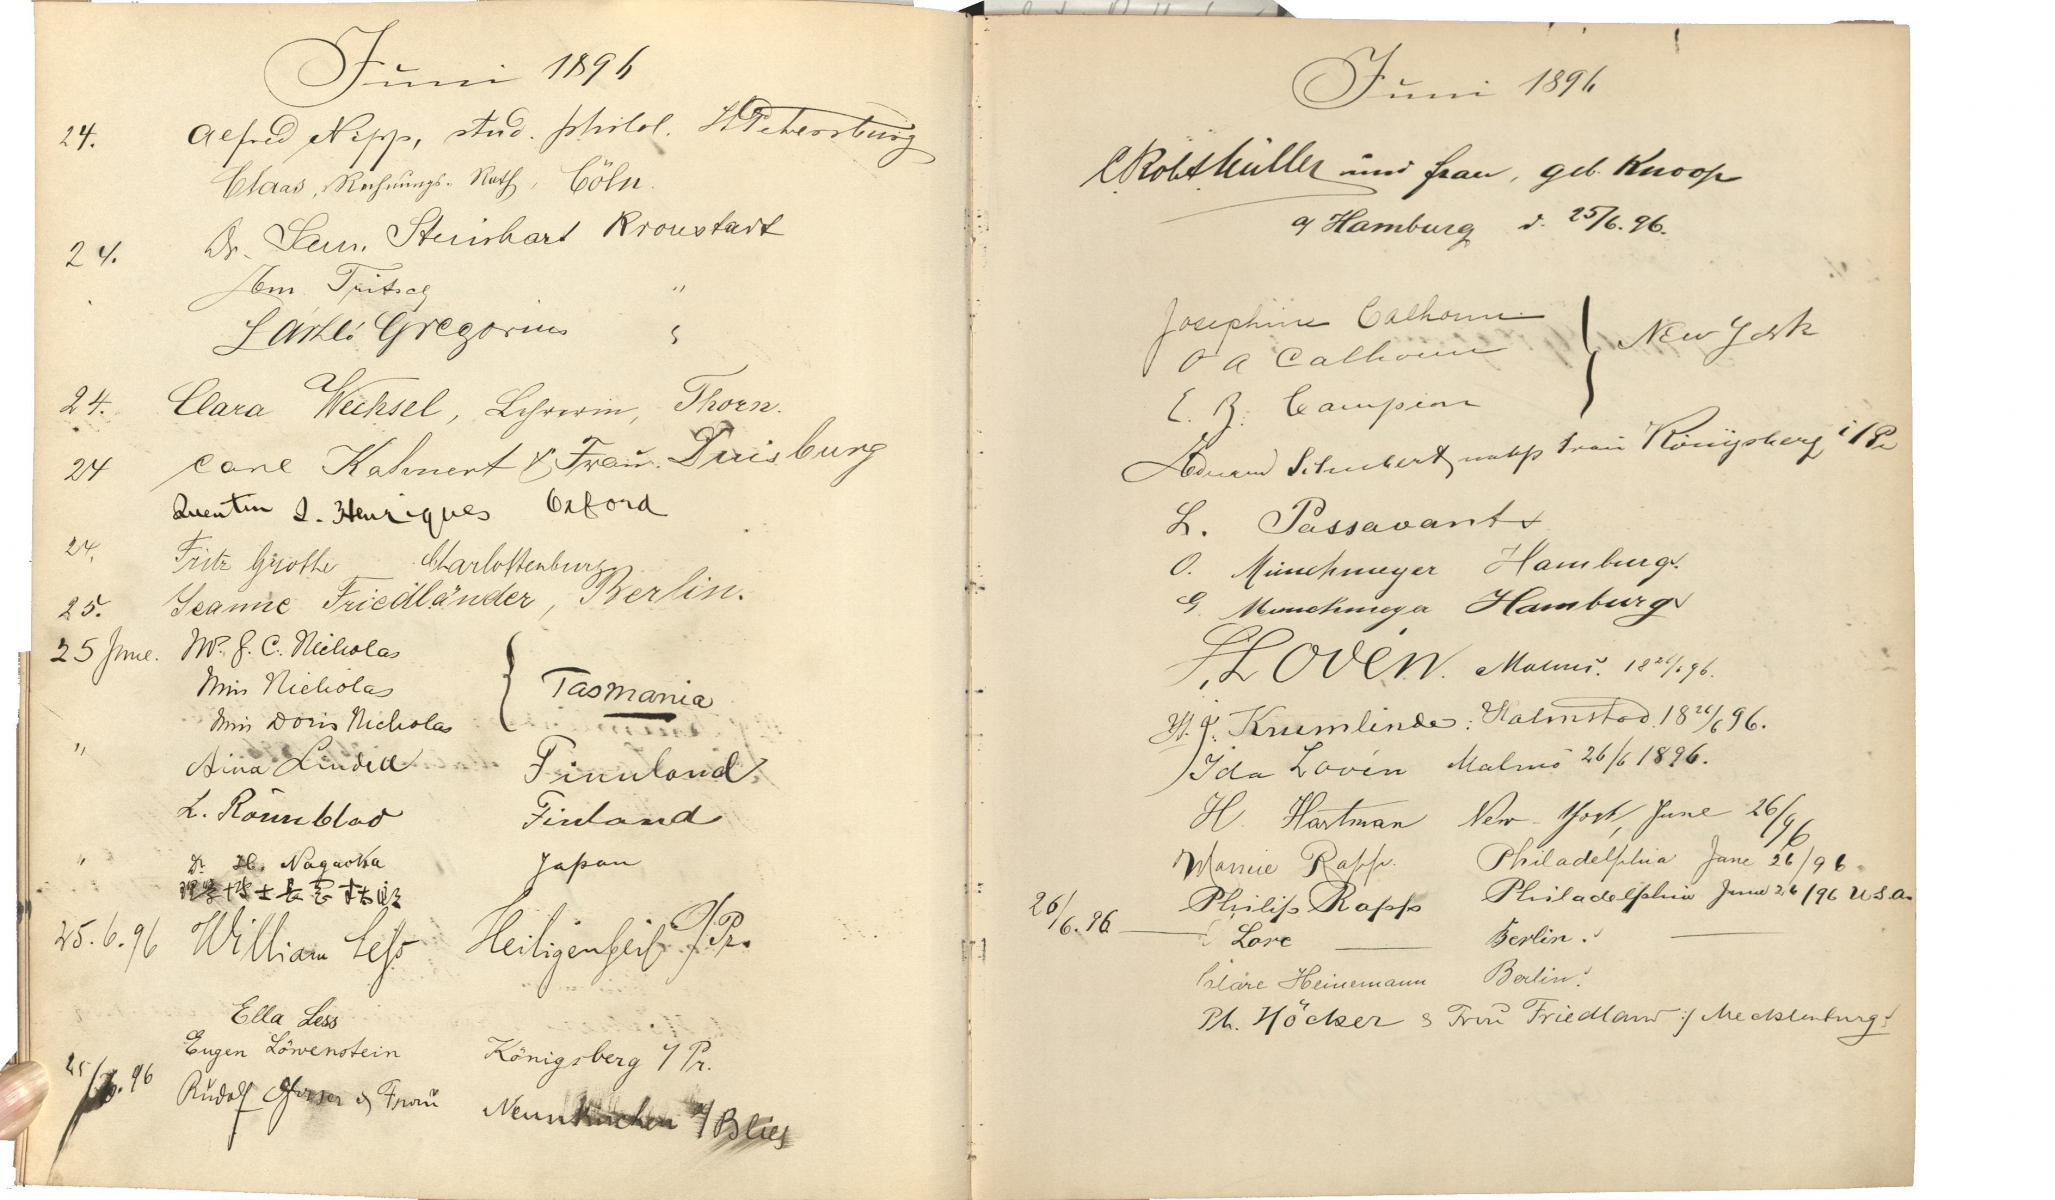 Juni 1896
24. Alfred Nipp, stud. philol. St Petersburg
Claas, Rechnungs-Rath, Cöln.
24. Dr. Sam. Steinhart Kronstadt
Em. Tritsch "
László Gregorius "
24. Clara Wechsel, Lehrerin, Thorn.
24 Carl Kahnert & Frau. Duisburg
Quentin Henriques Oxford
24. Fritz Grothe Charlottenburg
25. Jeanne Friedländer, Berlin.
25 June. Mr. J. C. Nicholas
Miss Nicholas Tasmania
Miss Doris Nicholas
" Aina Lindell Finnland
L. Rönnblad Finland
" Dr. H. Nagaoka Japan
理學博士長岡半太郎
25.6.96 William Less Heiligenbeil O/Pr.
Ella Less
Eugen Löwenstein Königsberg i/Pr.
25/6.96 Rudolf & Frau Neunkirchen a/Blies
Juni 1896
und Frau, geb. Knoop
a/ Hamburg d. 25/6.96.
Josephine Calhoun
O A Calhoun New York
E. B. Campion
Eduard Schubert nebst Frau Königsberg i/Pr
L. Passavant
O. Münchmeyer Hamburg.
G. Münchmeyer Hamburg
Lovén. Malmö. 18 26/6 96.
Krumlinde. Halmstad 18 26/6 96.
Ida Lovén Malmö 26/6 1896.
H. Hartman New York, June 26/96
Mamie Rapp. Philadelphia June 26/96
Philip Rapp Philadelphia June 26/96 U.S.A.
26/6.96 Lore Berlin.
Heinemann Berlin.
Ph. Höcker & Frau Friedland i/ Mecklenburg.